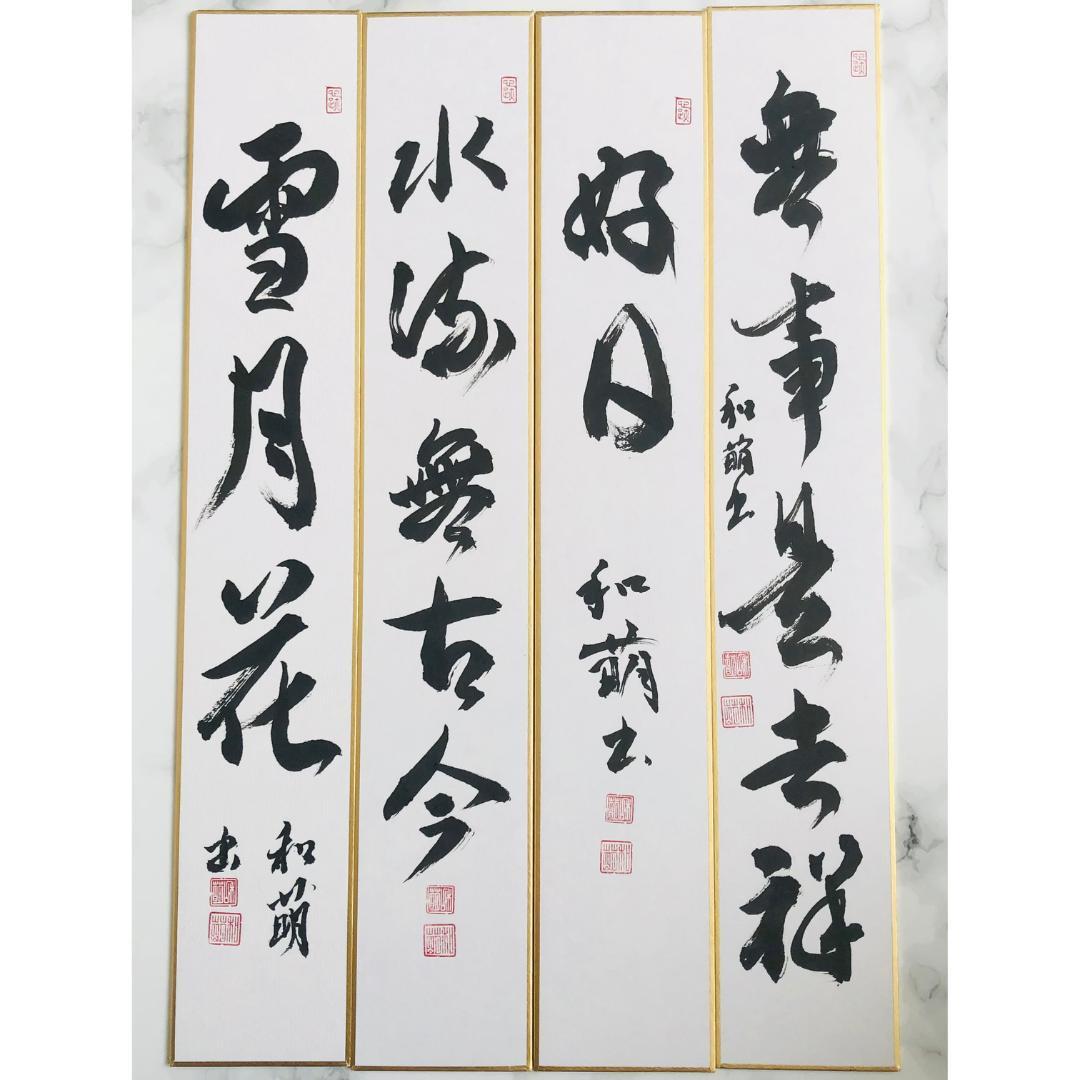 無事是吉祥
和萌書
好日
和萌書
水流無古今
雪月花
和萌
書